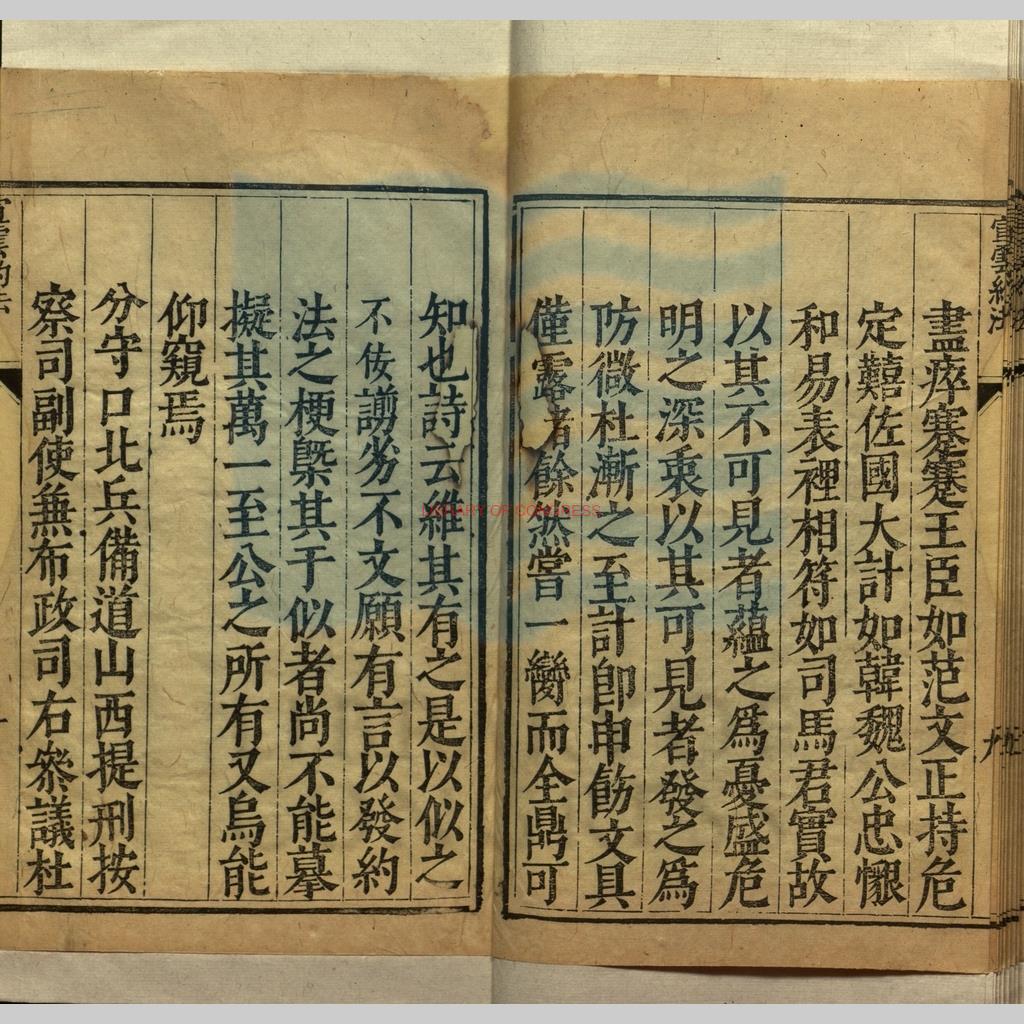 盡瘁蹇蹇王臣如范文正持危
定囏佐國大計如韓魏公忠懇
和易表裡相符如司馬君實故
以其不可見者蘊之為憂盛危
明之深衷以其可見者發之為
防微杜漸之至計即申飭文具
僅露者餘然嘗一臠而全鼎可
知也詩云維其有之是以似之
不佞謭劣不文願有言以發約
法之梗槩其于似者尚不能摹
擬其萬一至公之所有又烏能
仰窺焉
分守口北兵備道山西提刑按
察司副使兼布政司右叅議杜
宣雲約法
LIBRARY OF CONGRESS